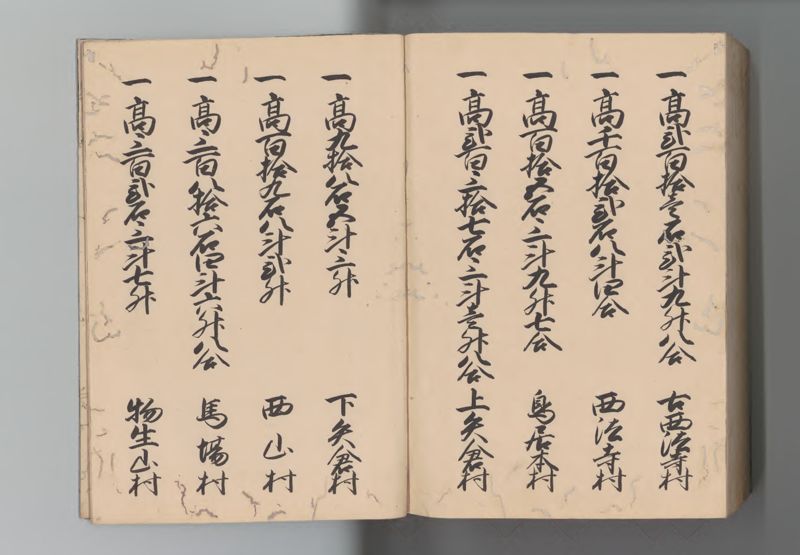 一高弐百拾壱石弐斗九升八合 古西法寺村
一高千百拾弐石八斗四合 西法寺村
一高百拾五石三斗九升七合 鳥居本村
一高弐百三拾七石三斗壱升八合 上矢倉村
一高九拾八石五斗三升 下矢倉村
一高百拾九石八斗弐升 西山村
一高三百八拾六石四斗六升八合 馬場村
一高三百弐石三斗七升 物生山村